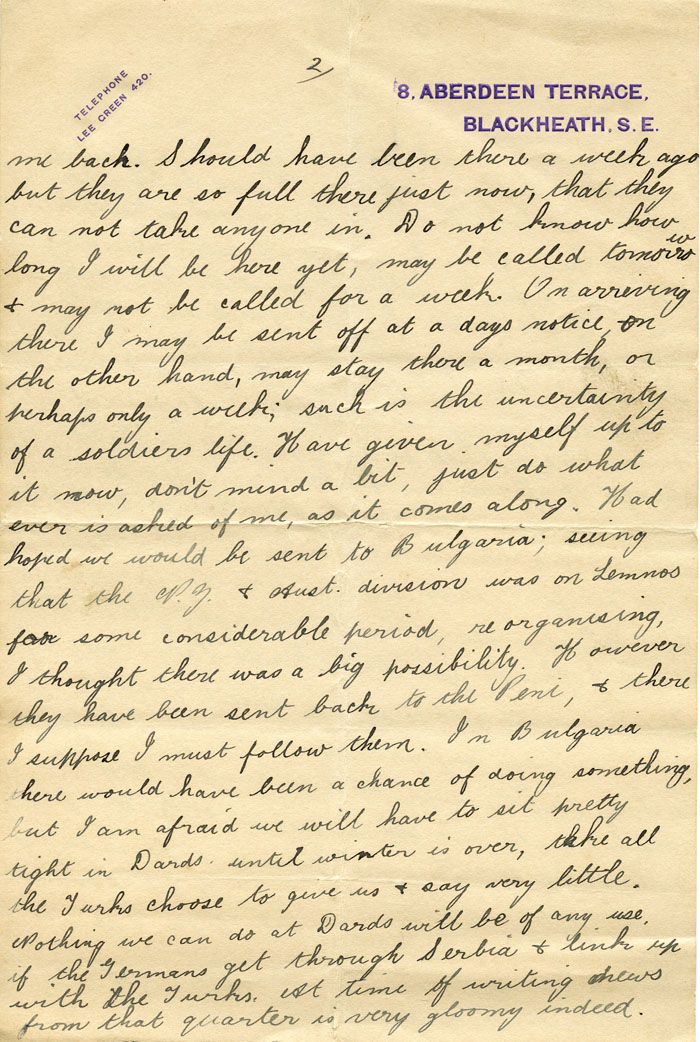 2
TELEPHONE
LEE GREEN 420.
8, ABERDEEN TERRACE,
BLACKHEATH. S. E.
me back. Should have been there a week ago
but they are so full there just now, that they
can not take anyone in. Do not know how
long I will be here yet, may be called tomorrow
& may not be called for a week. On arriving
there I may be sent off at a days notice, on
the other hand, may stay there a month, or
perhaps only a week; such is the uncertainty
of a soldiers life. Have given myself up to
it now, don't mind a bit, just do what
ever is asked of me, as it comes along. Had
hoped we would be sent to Bulgaria; seeing
that the N.Z. & Aust. division was on Lemnos
for some considerable period, reorganising,
I thought there was a big possibility. However
they have been sent back to the Peni, & there
I suppose I must follow them. In Bulgaria
there would have been a chance of doing something,
but I am afraid we will have to sit pretty
tight in Dards. until winter is over, take all
the Turks choose to give us & say very little.
Nothing we can do at Dards will be of any use,
if the Germans get through Serbia & link up
with the Turks. At time of writing news
from that quarter is very gloomy indeed.